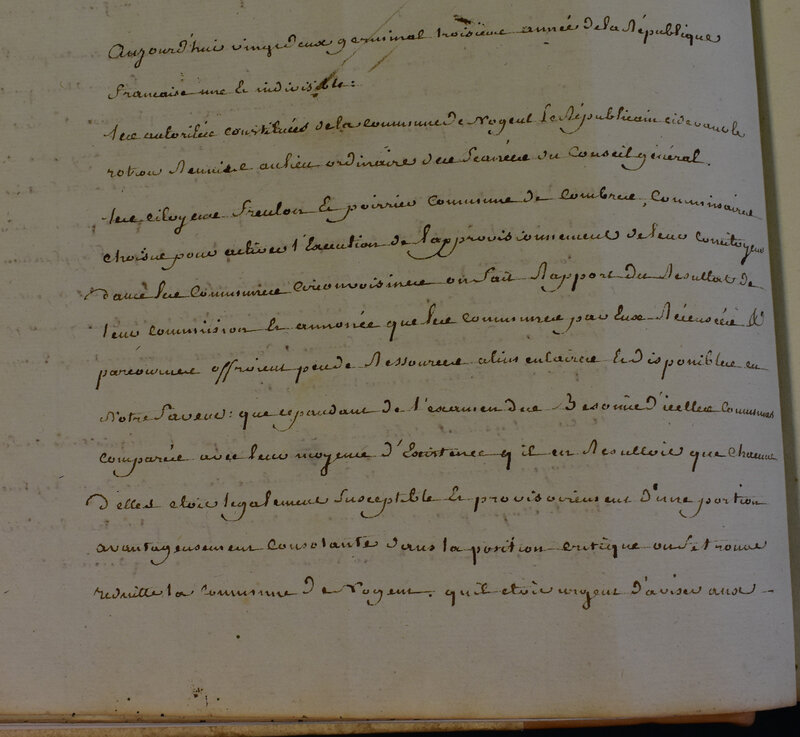 Aujourd'hui vingt deux germinal troisieme année de la République
francaise une et indivisible:
les autorités constituées de la commune de Nogent le Républicain cidevant le
rotrou Reunies au lieu ordinaire des Seances du Conseil général.
les citoyens freulon et poirrier commune de Combres, Commissaires
choisis pour activer l'Execution de l'approvisionnement de leurs Concitoyens
dans les Communes circonvoisines ont fait Rapport du Resultat de
leur commission et annoncé que les communes par Eux Récensées &
parcourues offroient peu de Ressources alimentaires et disponibles en
Notre faveur: que cependant de l'examen des Besoins d'icelles Communes
comparés avec leurs moyens d'Existence q il en Resultoit que chacune
d'elles etoit legalement Susceptible et provisoirement d'une portion
avantageusement consolante dans la position critique ou se trouve
reduitte la Commune de Nogent. qu'il etoit urgent d'aviser aux